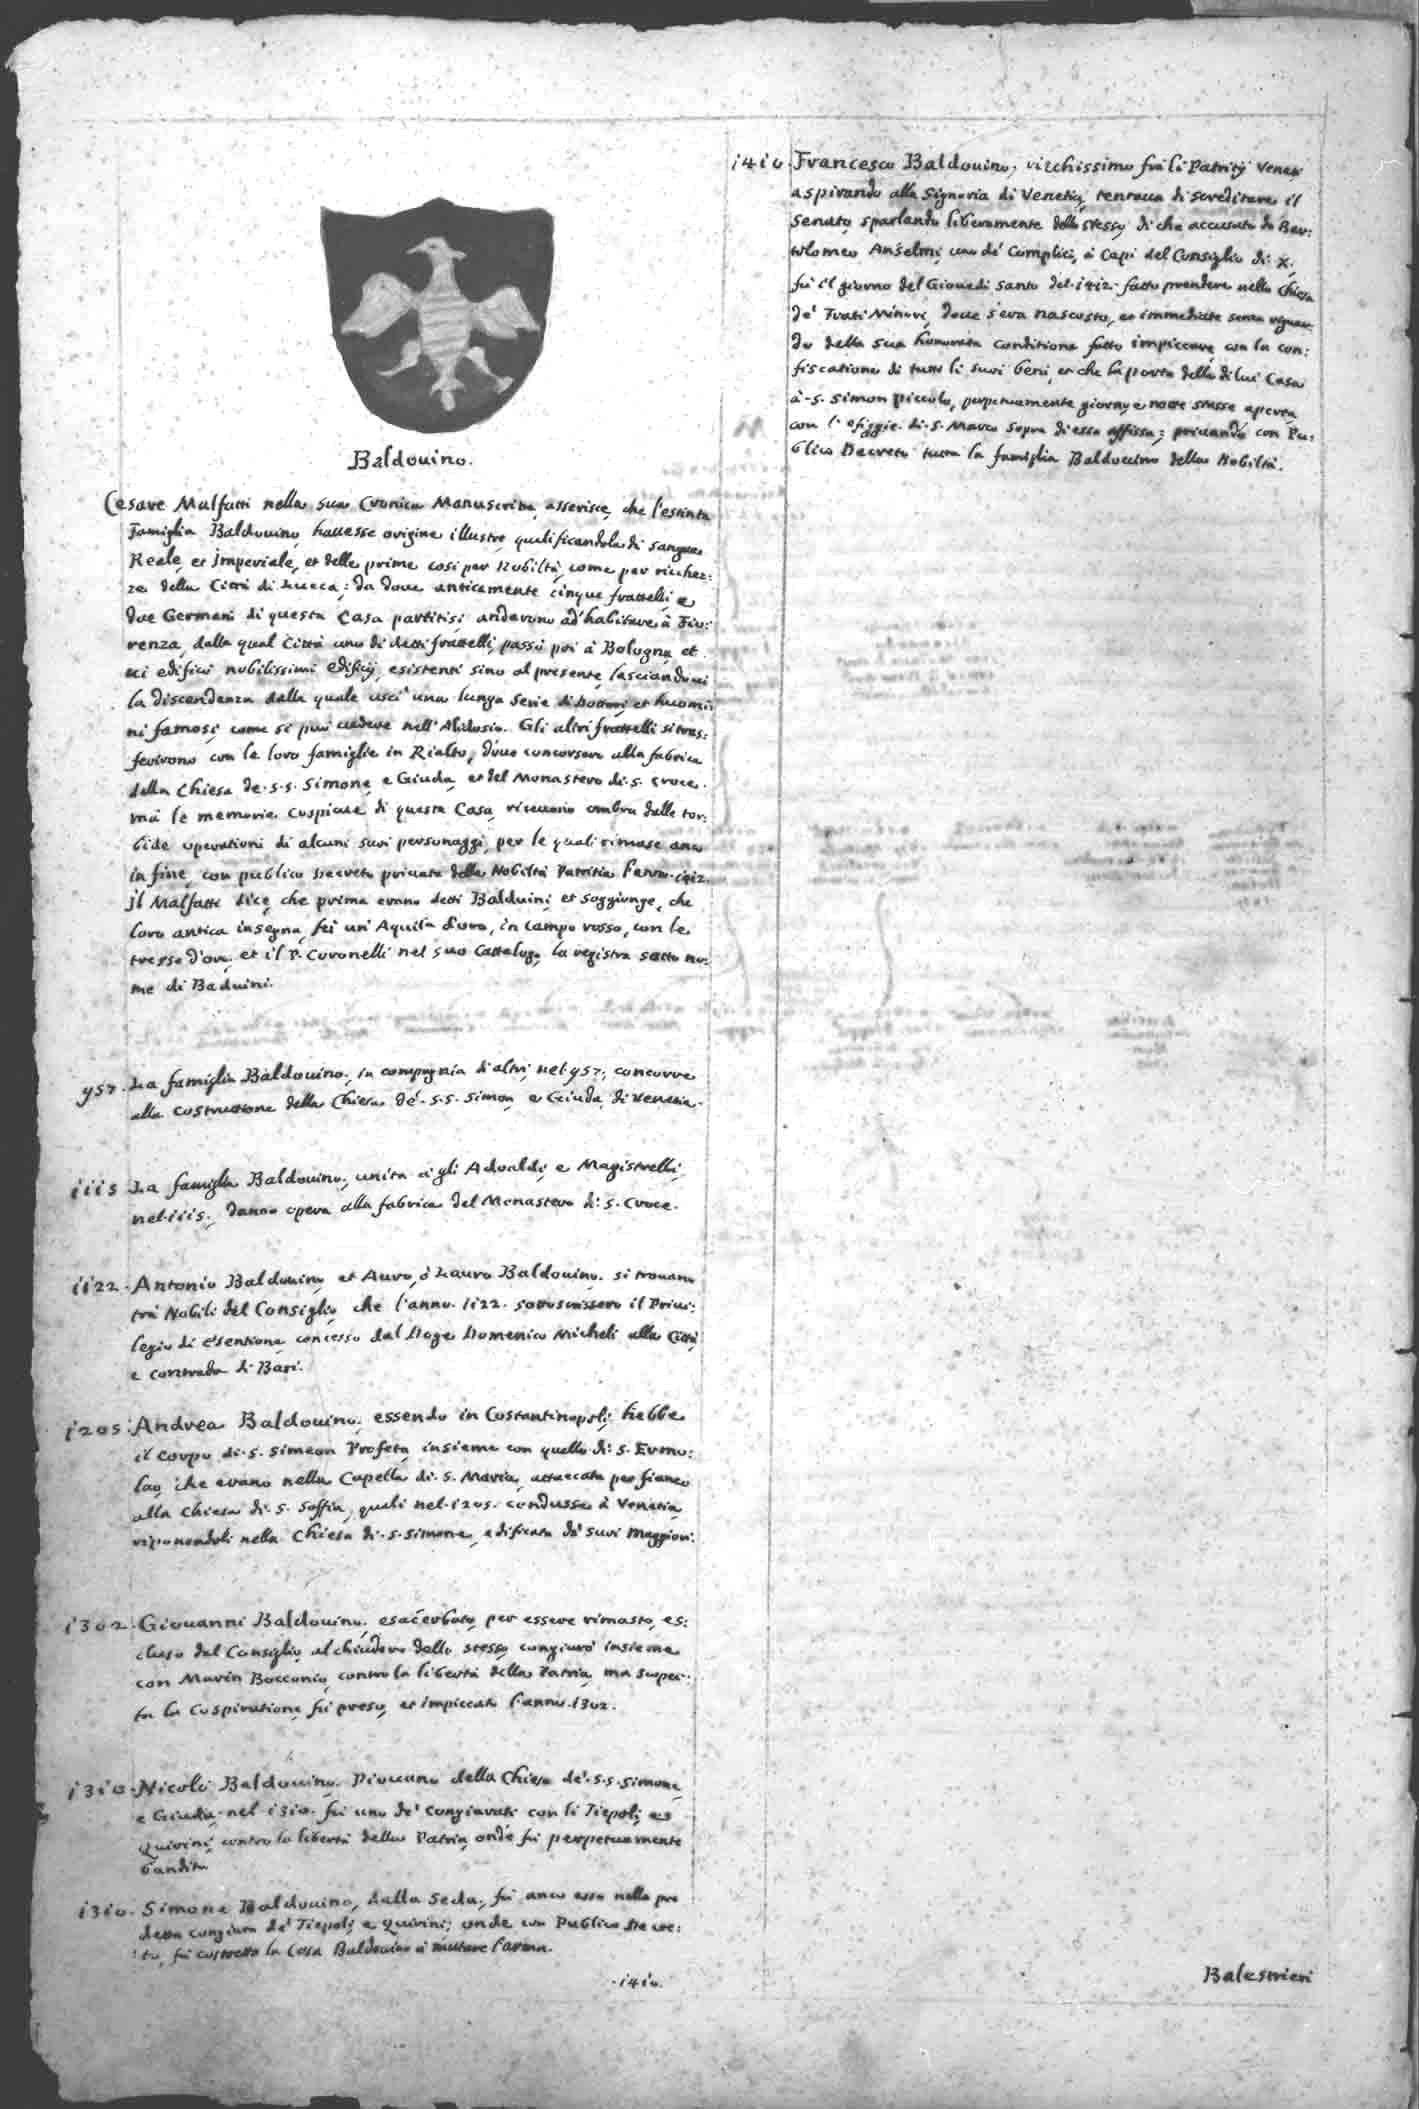 Baldouino.
Cesare Malfatti nella sua Cronica Manuscritta, asserisce, che l'estinta
Famiglia Baldouino, hauesse origine illustre, qualificandola di sangue
Reale, et Imperiale, et delle prime cosi per Nobiltà, come per ricchez:
ze della Città di Lucca; da doue anticamente cinque frattelli, e
due Germani di questa Casa partitisi andarono ad habitare à Fio:
renza, dalla qual Città uno di detti frattelli, passò poi à Bologna, et
ui edificò nobilissimi edificij, esistenti sino al presente, lasciandoui
la discendenza dalla quale uscì una lunga serie di Dottori, et huomi:
ni famosi, come si può uedere nell'Alidosio. Gli altri frattelli si tras:
ferirono con le loro famiglie in Rialto, doue concorsero alla fabrica
della Chiesa de. S.S. Simone, e Giuda, et del Monastero di. S. Croce.
mà le memorie cospicue di questa Casa, riceuono ombra dalle tor:
bide operationi di alcuni suoi personaggi, per le quali rimase anco
in fine, con publico Decreto priuata della Nobiltà Patritia l'anno. 1412.
Il Malfatti dice, che prima erano detti Balduini, et soggiunge, che
loro antica insegna, fù un'Aquila d'oro, in campo rosso, con le
tresse d'oro, et il P. Coronelli nel suo Cattalogo, la registra sotto no:
me di Baduini.
957. La famiglia Baldouino, in compagnia d'altri, nel 957, concorre
alla costruttione della Chiesa de'. S.S. Simon, e Giuda, di Venetia.
1115 La famiglia Baldouino, unita à gli Adoaldi, e Magistrelli,
nel. 1115., danno opera alla fabrica del Monastero di. S. Croce.
1122. Antonio Baldouino, et Auro, ò Lauro Baldouino. si trouano
trà Nobili del Consiglio, che l'anno. 1122. sottoscrissero il Priui:
legio di esentione, concesso dal Doge Domenico Micheli alla Città,
e contrada di Bari.
1205. Andrea Baldouino, essendo in Costantinopoli, hebbe
il corpo di. S. Simeon Profeta, insieme con quello di. S. Ermo:
lao, che erano nella Capella di. S. Maria, attaccata per fianco
alla Chiesa di. S. Soffia, quali nel. 1205. condusse à Venetia,
riponendoli nella Chiesa di. S. Simone, edificata da' suoi Maggiori.
1302. Giouanni Baldouino, esacerbato, per essere rimasto, es:
cluso dal Consiglio, al chiudere dello stesso, congiurò insieme
con Marin Bocconio, contro la libertà della Patria, ma scoper:
ta la Cospiratione, fù preso, et impiccato l'anno. 1302.
1310. Nicolò Baldouino. Piouano della Chiesa de'. S.S. Simone,
e Giuda, nel. 1310. fù uno de' congiurati con li Tiepoli, et
Quirini, contro la libertà della Patria, onde fù perpetuamente
bandito
1310. Simone Baldouino, dalla Seda, fù anco esso nella pre
detta congiura de' Tiepoli, e Quirini; onde con Publico Decre:
to, fù costretta la Casa Baldouino à mutare l'arma.
.1410.
1410. Francesco Baldouino, ricchissimo frà li Patritij Veneti
aspirando alla Signoria di Venetia, tentaua di screditare il
Senato, sparlando liberamente dello stesso, di che accusato da Bar:
tolomeo Anselmi, uno de' Complici, à Capi del Consiglio di. X.
fù il giorno del Giouedì Santo del. 1412. fatto prendere nella Chiesa
de' Frati Minori, doue s'era nascosto, et immediate senza riguar
do della sua honorata conditione fatto impiccare, con la con:
fiscatione di tutti li suoi beni, et che la porta della di lui Casa
à. S. Simon piccolo, perpetuamente giorno, e notte stasse aperta,
con l'effiggie. di. S. Marco sopra di essa affissa; priuando con Pu:
blico Decreto tutta la famiglia Baldouino della Nobiltà.
Balestrieri